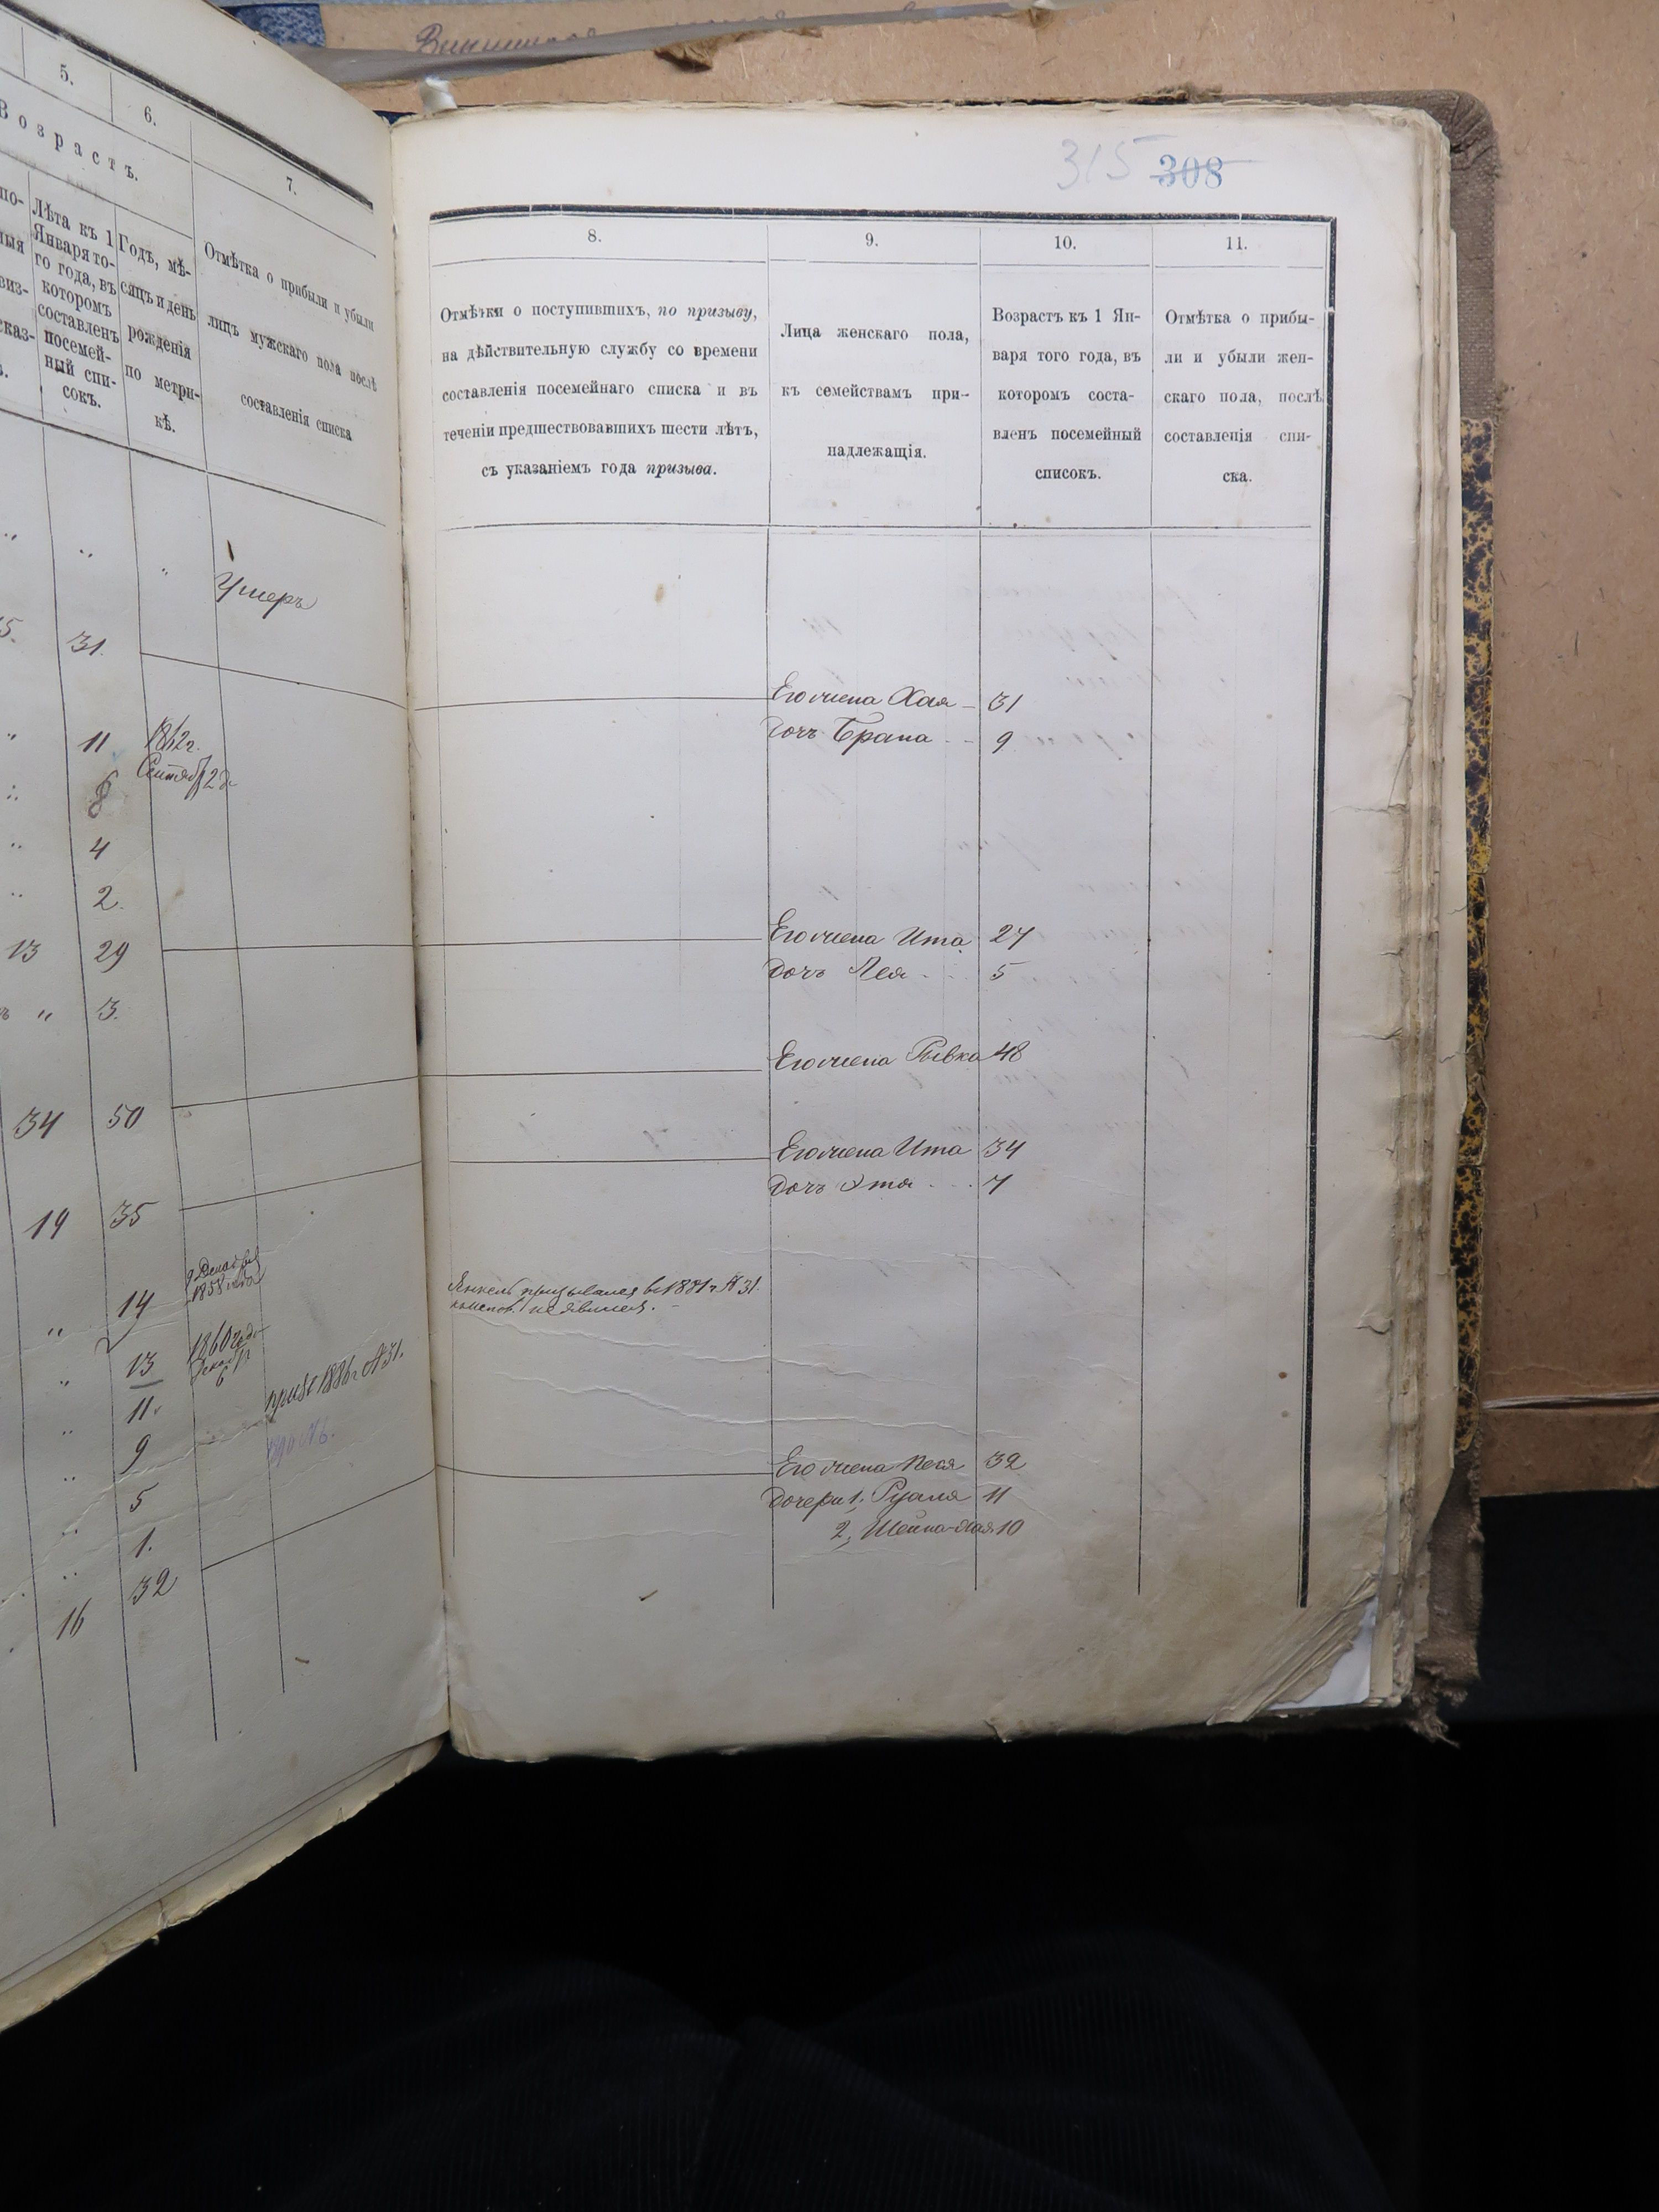 5.
6.
7.
Возрастъ.
Лѣта къ 1
Января то-
го года, въ
котором
составленъ
посемей-
ный спи-
сокъ.
Годъ, мѣ-
сяцъ и день
рожденія
по метри-
кѣ.
Отмѣтка о прибыли и убыли
лицъ мужскаго пола послѣ
составленія списка
Умеръ
31.
11 1862 г.
4
2.
13 29
3.
34 50
19 35
14 1858 года
13 1860 года
11.
9
5
1.
16 32
315 308
8.
9.
10.
11.
Отмѣтки о поступившихъ, по призыву,
на дѣйствительную службу со времени
составленія посемейнаго списка и въ
теченіи предшествовавшихъ шести лѣтъ,
съ указаніемъ года призыва.
Лица женскаго пола,
къ семействамъ при-
надлежащія.
Возрастъ къ 1 Ян-
варя того года, въ
котором соста-
вленъ посемейный
списокъ.
Отмѣтка о прибы-
ли и убыли жен-
скаго пола, послѣ
составленія спи-
ска.
Его жена Хая 31
дочь Брана 9
Его жена Ита 27
дочь Лея 5
Его жена Рывка 48
Его жена Ита 34
дочь Этя 7
Янкель призывался въ 1881 г. № 31.
не явился.
Его жена Песя 32
дочери 1, 11
2, Шейна-Хая 10